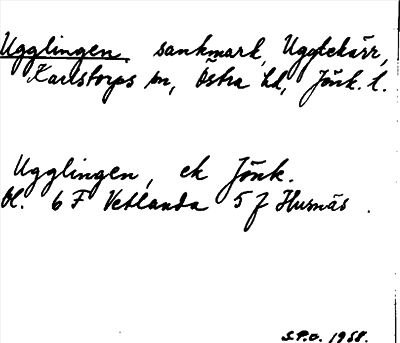 Ugglingen, sankmark, Ugglekärr,
Karlstorps sn, Östra hd, Jönk. l.
Ugglingen, ek Jönk.
bl. 6 F Vetlanda 5 f Husnäs.
S.P.O. 1958.